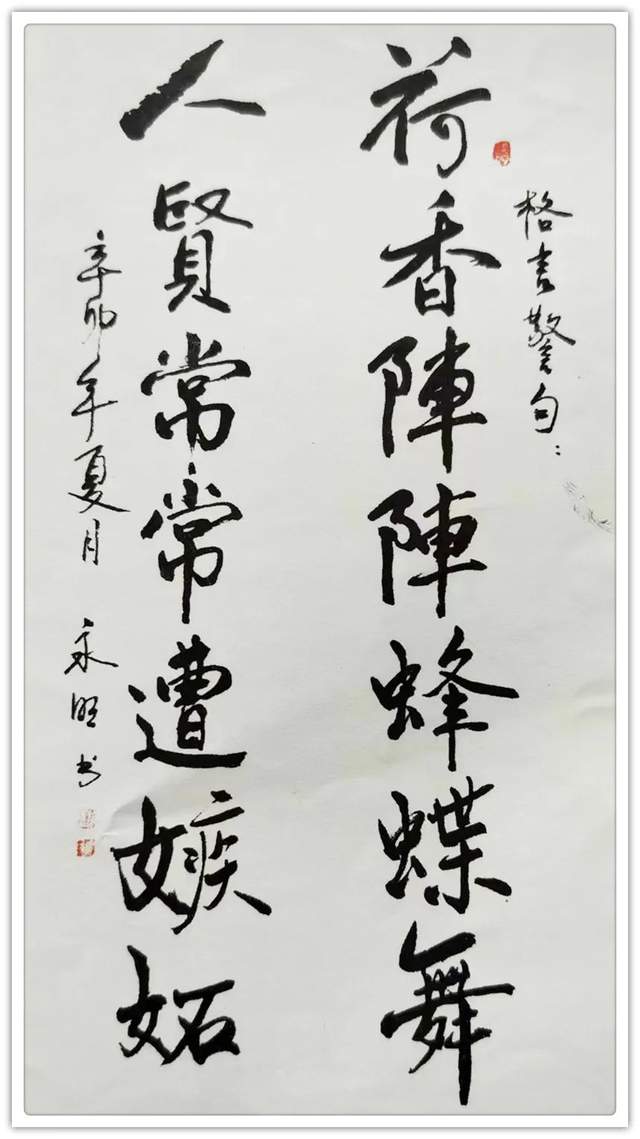 格言警句：
荷香陣陣蜂蝶舞
人賢常常遭嫉妬
辛卯年夏月 永旺书